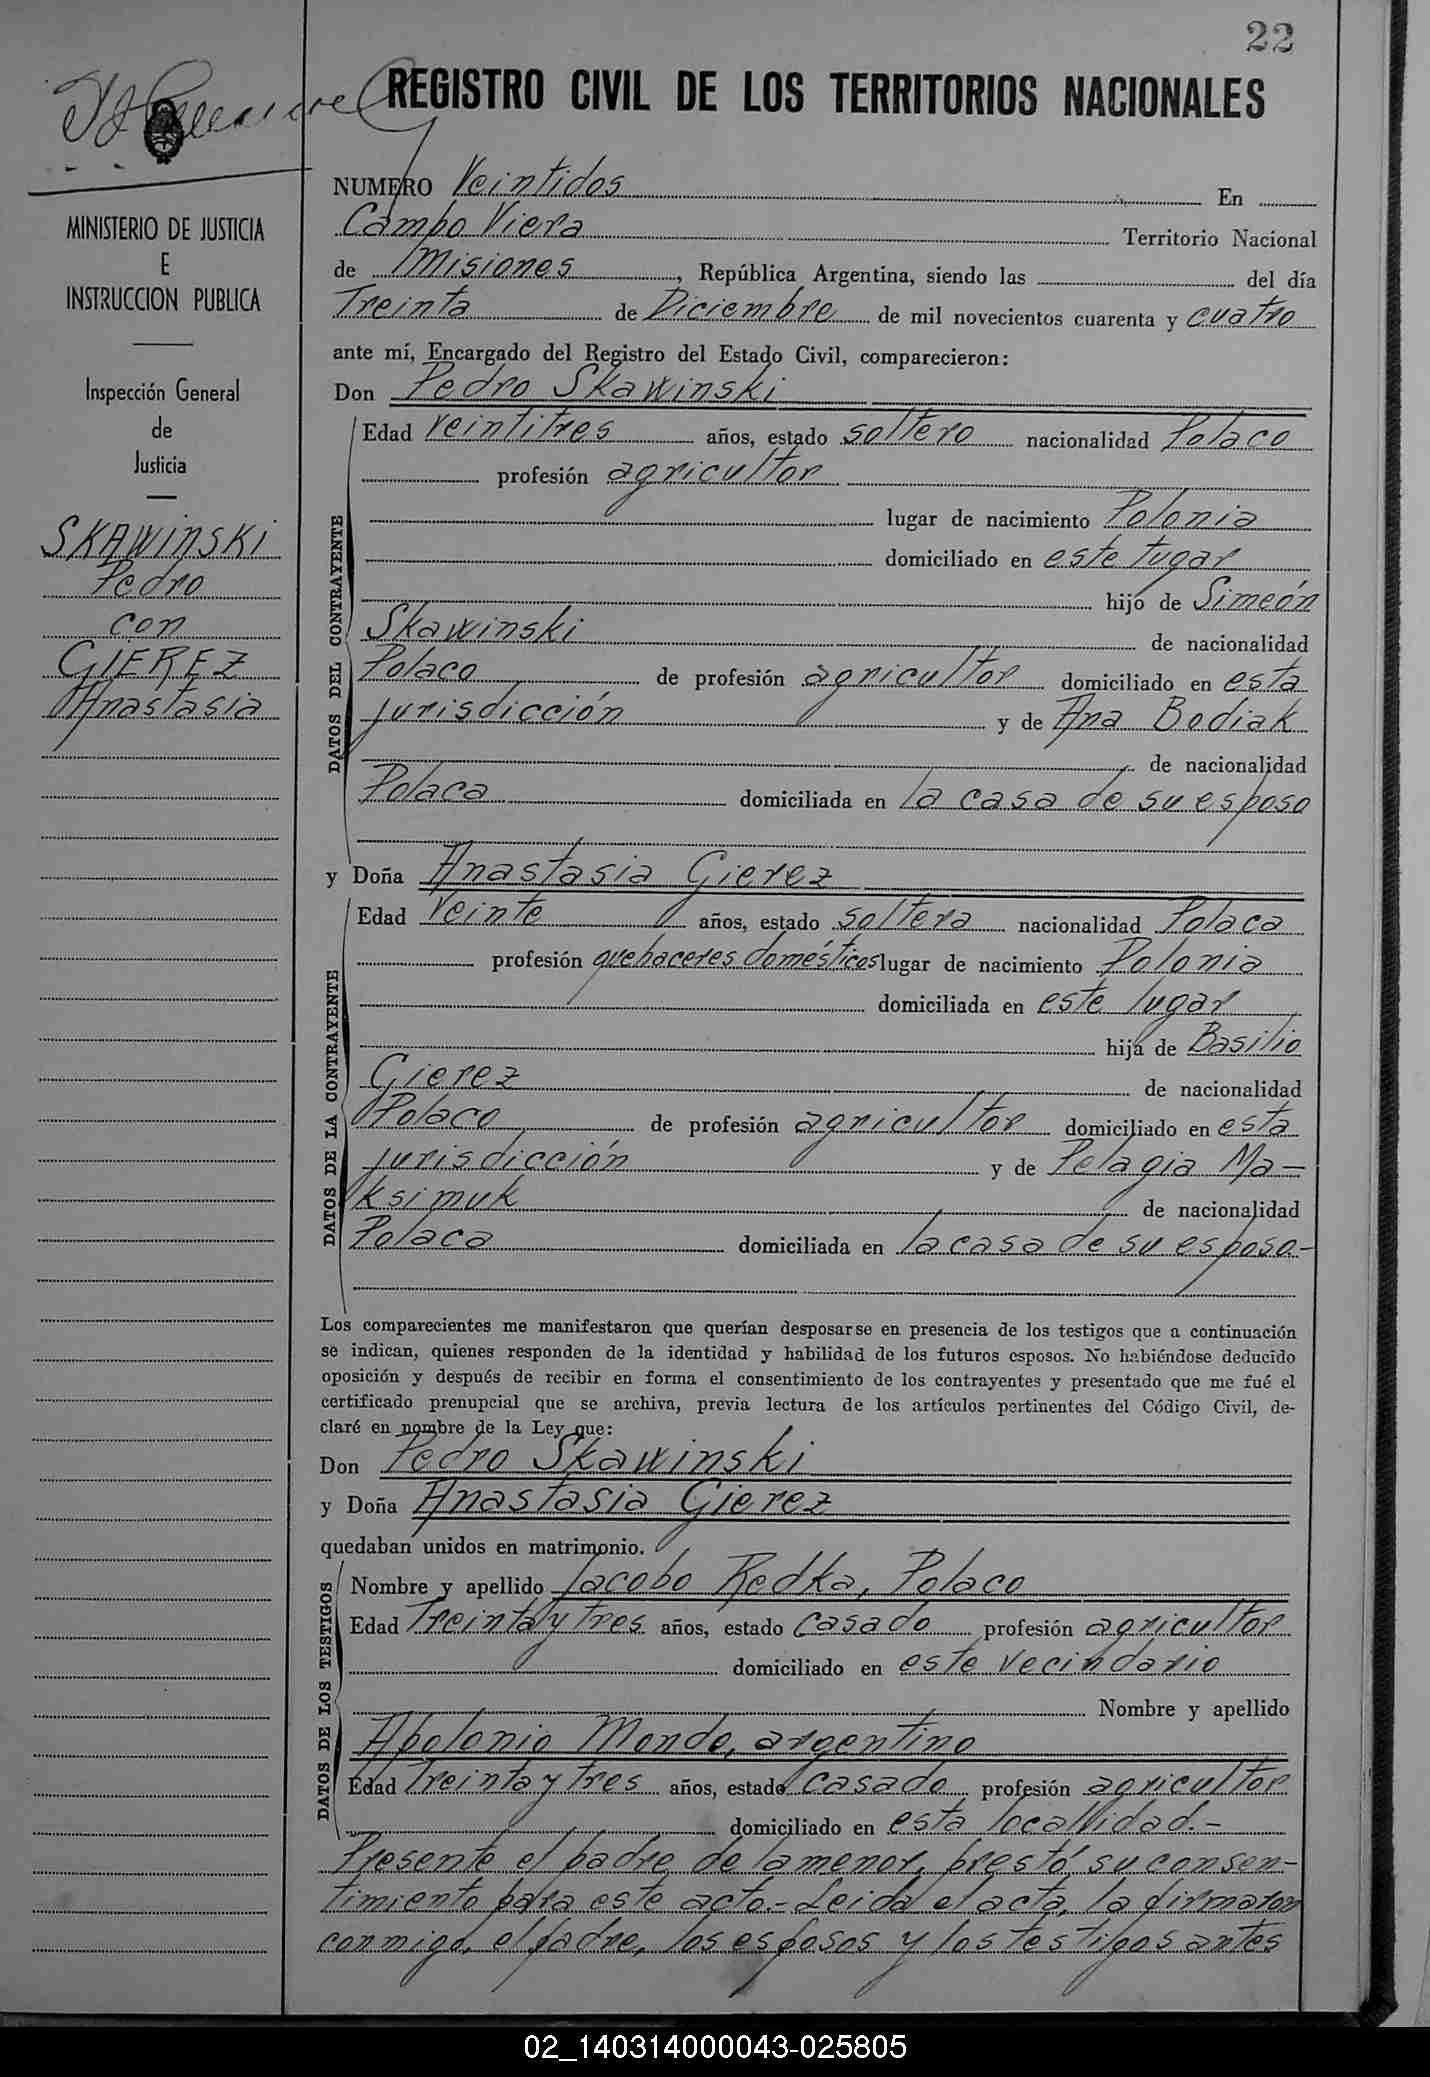 22
REGISTRO CIVIL DE LOS TERRITORIOS NACIONALES
MINISTERIO DE JUSTICIA
E
INSTRUCCION PUBLICA
Inspección General
de
Justicia
SKAWINSKI
Pedro
con
GIEREZ
Anastasia
NUMERO Veintidos En
Campo Viera Territorio Nacional
de Misiones, República Argentina, siendo las del día
Treinta de Diciembre de mil novecientos cuarenta y cuatro
ante mí, Encargado del Registro del Estado Civil, comparecieron:
Don Pedro Skawinski
DATOS DEL CONTRAYENTE
Edad veintitres años, estado soltero nacionalidad Polaco
profesión agricultor
lugar de nacimiento Polonia
domiciliado en este lugar
hijo de Simeón
Skawinski de nacionalidad
Polaco de profesión agricultor domiciliado en esta
jurisdicción y de Ana Bodiak
de nacionalidad
Polaca domiciliada en la casa de su esposo
y Doña Anastasia Gierez
DATOS DE LA CONTRAYENTE
Edad Veinte años, estado soltera nacionalidad Polaca
profesión quehaceres domésticos lugar de nacimiento Polonia
domiciliada en este lugar
hija de Basilio
Gierez de nacionalidad
Polaco de profesión agricultor domiciliado en esta
jurisdicción y de Pelagia Ma-
ksimuk de nacionalidad
Polaca domiciliada en la casa de su esposo.-
Los comparecientes me manifestaron que querían desposarse en presencia de los testigos que a continuación
se indican, quienes responden de la identidad y habilidad de los futuros esposos. No habiéndose deducido
oposición y después de recibir en forma el consentimiento de los contrayentes y presentado que me fué el
certificado prenupcial que se archiva, previa lectura de los artículos pertinentes del Código Civil, de-
claré en nombre de la Ley que:
Don Pedro Skawinski
y Doña Anastasia Gierez
quedaban unidos en matrimonio.
DATOS DE LOS TESTIGOS
Nombre y apellido Jacobo Redka, Polaco
Edad Treinta y tres años, estado casado profesión agricultor
domiciliado en este vecindario
Nombre y apellido
Apolonio Mendo, argentino
Edad Treinta y tres años, estado casado profesión agricultor
domiciliado en esta localidad.-
Presente el padre de la menor, prestó su consen-
timiento para este acto.- Leida el acta, la firmaron
conmigo, el padre, los esposos y los testigos antes
02_140314000043-025805